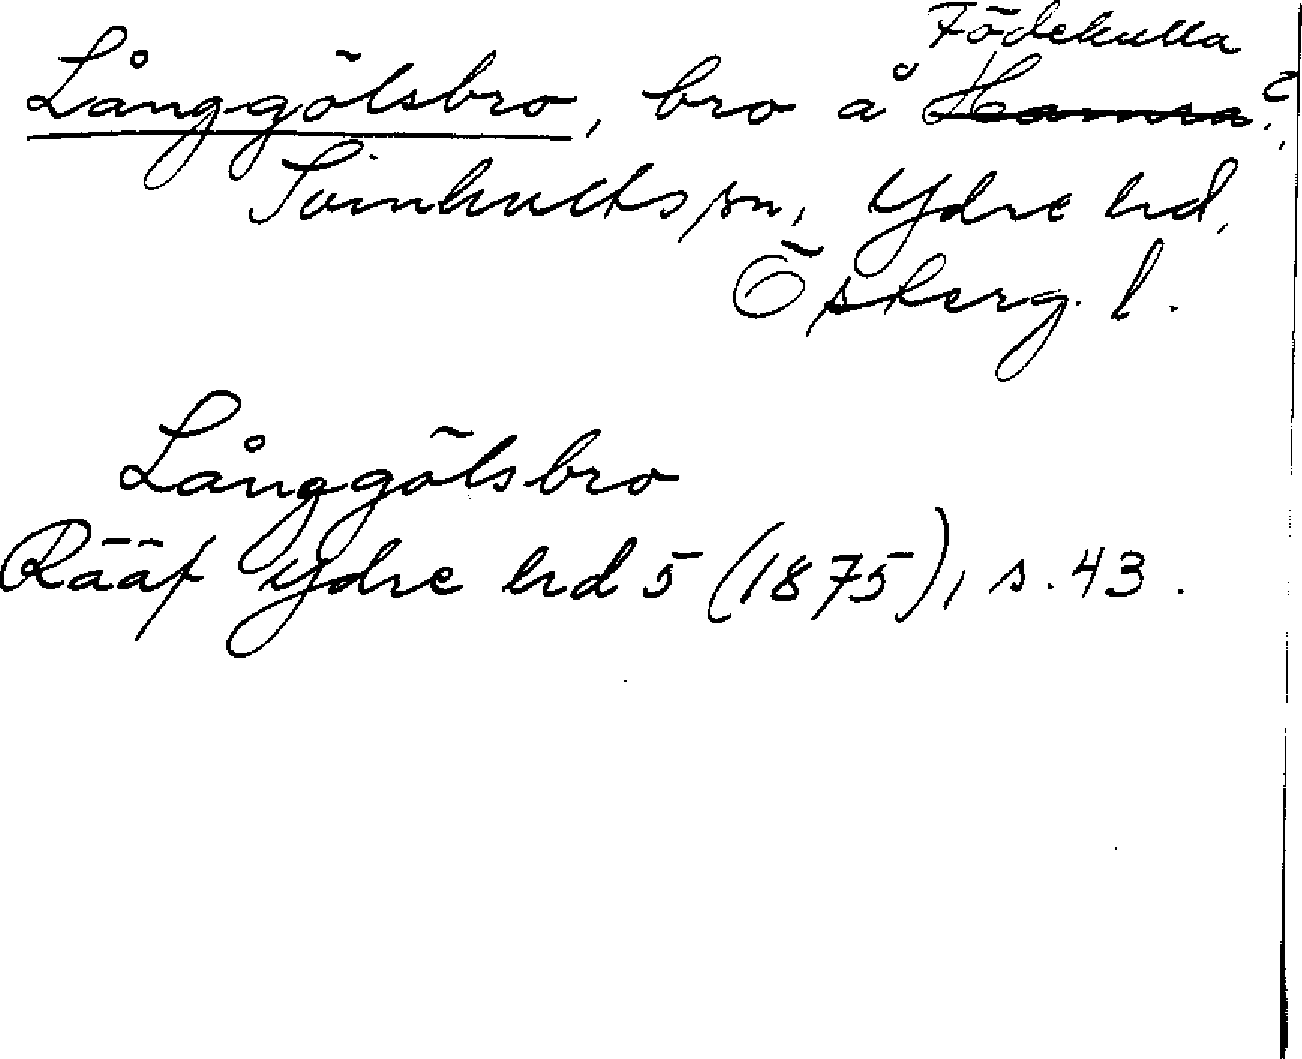 Födekulla
Långgölsbro, bro å Hamra?,
Svinhults sn, Ydre hd,
Östergl.
Långgölsbro
Rääf Ydre hd 5 (1875), s. 43.